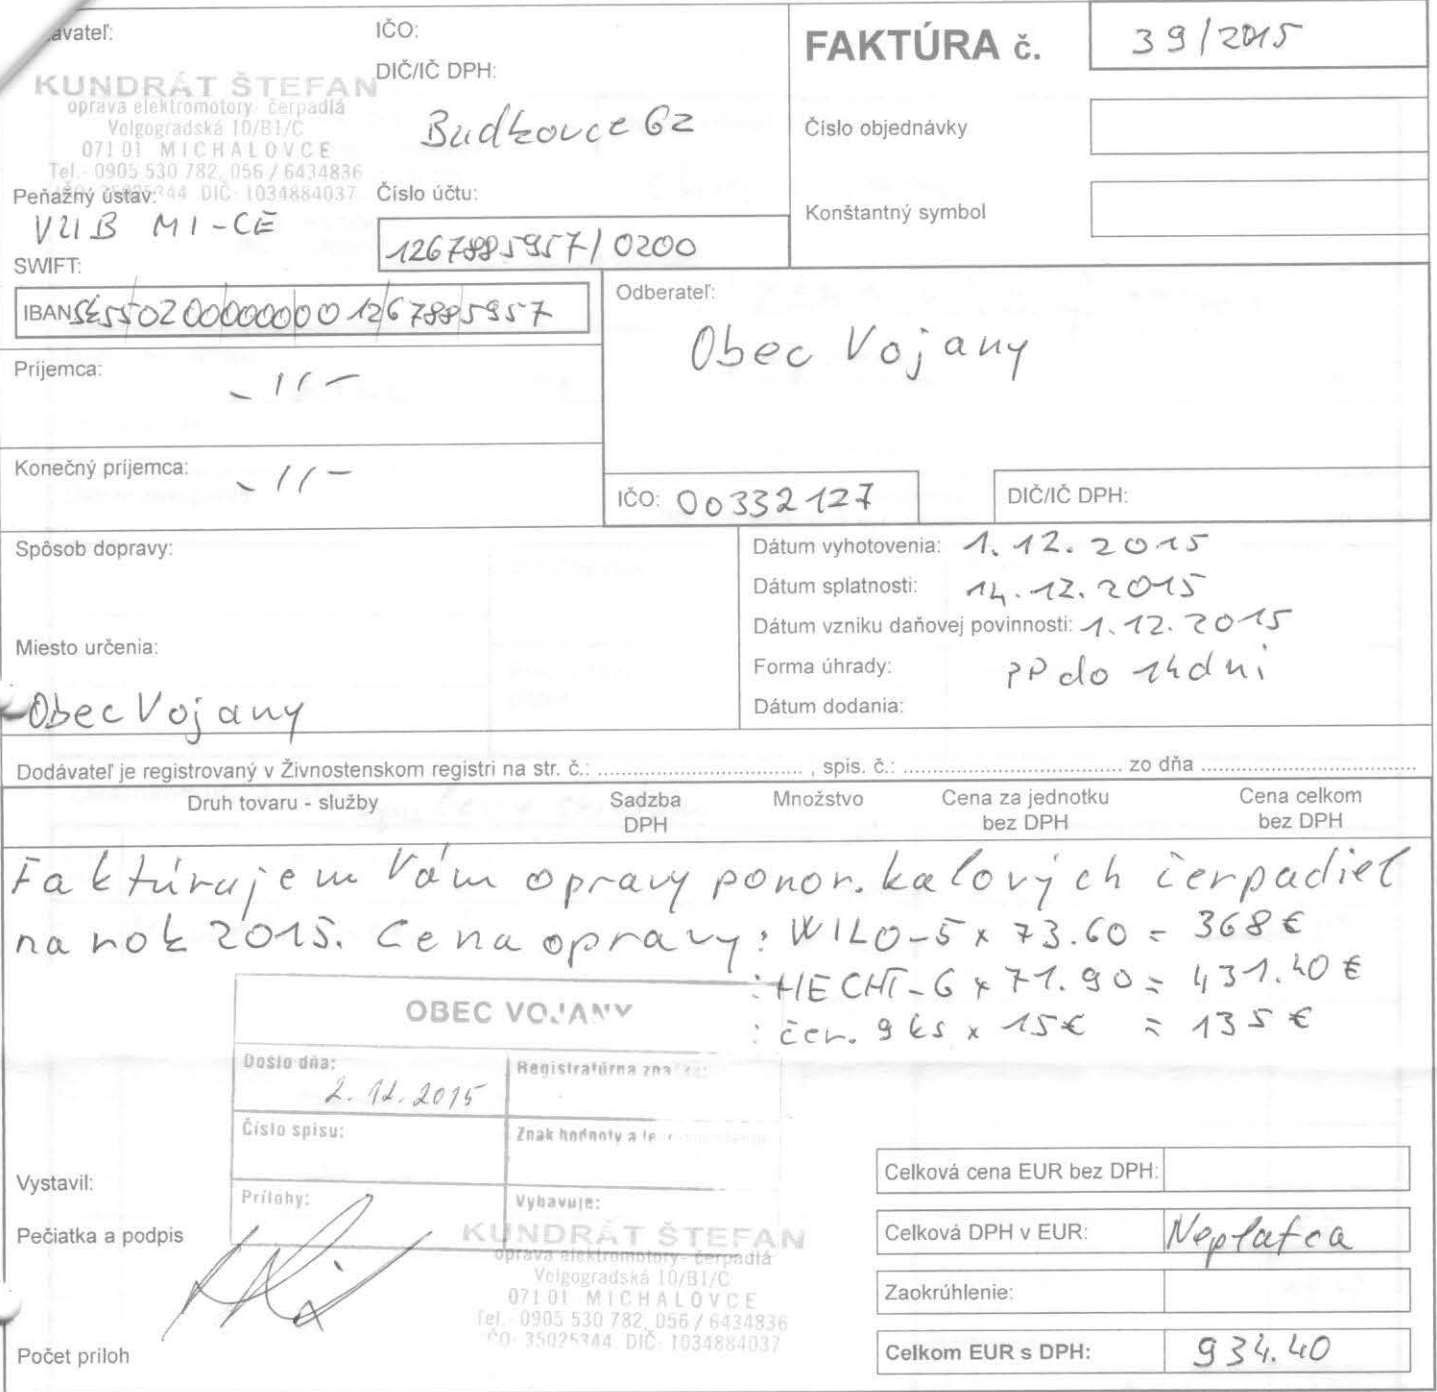 IČO:
DIČ/IČ DPH:
KUNDRÁT ŠTEFAN
oprava elektromotory- čerpadlá
Volgogradská 10/B1/C
071 01 MICHALOVCE
Tel.- 0905 530 782, 056 / 6434836
DIČ- 1034884037
Budkovce 62
Peňažný ústav:
VÚB MI-CE
Číslo účtu:
1267885957/0200
SWIFT:
IBAN SK5502000000001267885957
FAKTÚRA č. 39/2015
Číslo objednávky
Konštantný symbol
Príjemca:
-11-
Konečný príjemca:
-11-
Odberateľ:
Obec Vojany
IČO: 00332127
DIČ/IČ DPH:
Spôsob dopravy:
Miesto určenia:
Obec Vojany
Dátum vyhotovenia: 1.12.2015
Dátum splatnosti: 14.12.2015
Dátum vzniku daňovej povinnosti: 1.12.2015
Forma úhrady: PP do 14 dni
Dátum dodania:
Dodávateľ je registrovaný v Živnostenskom registri na str. č.: ..................... , spis. č.: ..................... zo dňa .....................
Druh tovaru - služby Sadzba DPH Množstvo Cena za jednotku bez DPH Cena celkom bez DPH
Faktúrujem Vám opravy ponor. kalových čerpadiel
na rok 2015. Cena opravy: WILO-5 x 73.60 = 368 €
: HECHT-6 x 71.90 = 431.40 €
: čer. 9 ks x 15€ = 135 €
OBEC VOJANY
Došlo dňa:
2.12.2015
Registratúrna
Číslo spisu:
Znak hodnoty a
Prílohy:
Vybavuje:
Vystavil:
Pečiatka a podpis
KUNDRÁT ŠTEFAN
oprava elektromotory- čerpadlá
Volgogradská 10/B1/C
071 01 MICHALOVCE
Tel.- 0905 530 782, 056 / 6434836
DIČ- 1034884037
Počet príloh
Celková cena EUR bez DPH:
Celková DPH v EUR: Neplatca
Zaokrúhlenie:
Celkom EUR s DPH: 934.40